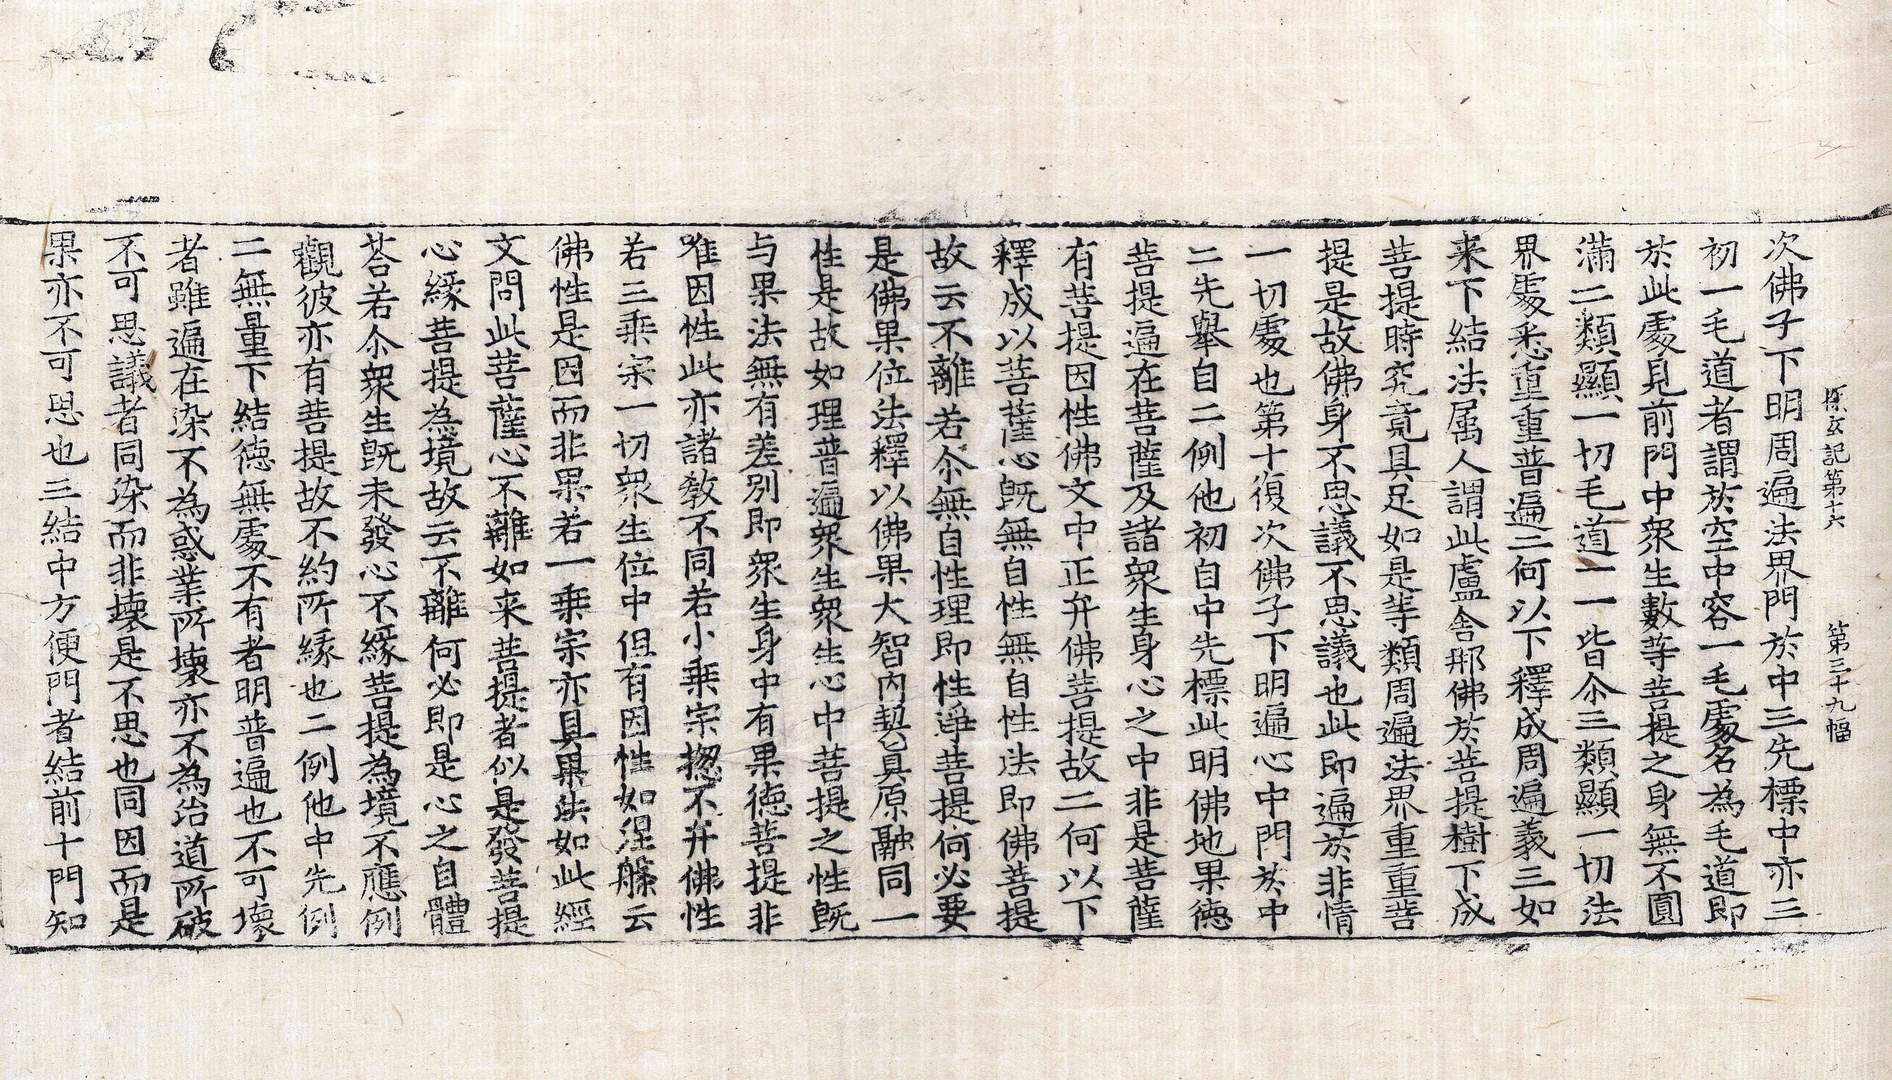 探玄記第十六　第三十九幅
次佛子下明周遍法界門於中三先標中亦三
初一毛道者謂於空中容一毛處名為毛道即
於此處見前門中衆生數等菩提之身無不圓
滿二類顯一切毛道一一皆尒三類顯一切法
界處悉重重普遍二何以下釋成周遍義三如
来下結法属人謂此盧舎那佛於菩提樹下成
菩提時究竟具足如是等類周遍法界重重菩
提是故佛身不思議不思議也此即遍於非情
一切處也第十復次佛子下明遍心中門於中
二先舉自二例他初自中先標此明佛地果德
菩提遍在菩薩及諸衆生身心之中非是菩薩
有菩提因性佛文中正弁佛菩提故二何以下
釋成以菩薩心既無自性無自性法即佛菩提
故云不離若尒無自性理即性淨菩提何必要
是佛果位法釋以佛果大智内契真原融同一
性是故如理普遍衆生衆生心中菩提之性既
与果法無有差別即衆生身中有果德菩提非
唯因性此亦諸教不同若小乗宗揔不弁佛性
若三乗宗一切衆生位中但有因性如涅槃云
佛性是因而非果若一乗宗亦具果法如此經
文問此菩薩心不離如来菩提者似是發菩提
心縁菩提為境故云不離何必即是心之自體
荅若尒衆生既未發心不縁菩提為境不應例
觀彼亦有菩提故不約所縁也二例他中先例
二無量下結德無處不有者明普遍也不可壞
者雖遍在染不為惑業所壞亦不為治道所破
不可思議者同染而非壞是不思也同因而是
果亦不可思也三結中方便門者結前十門知